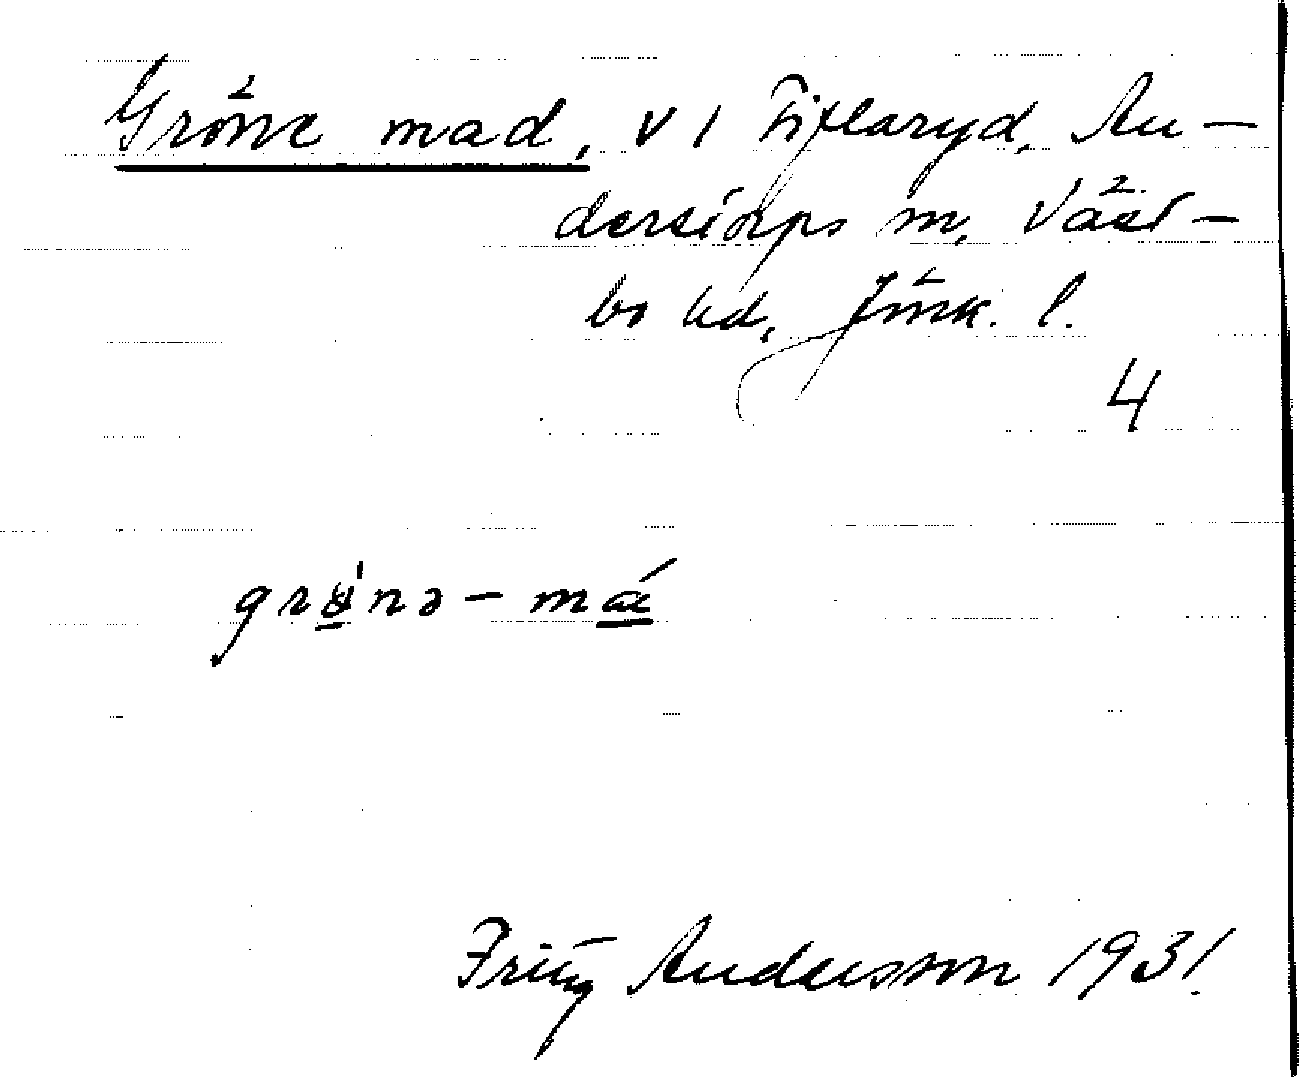 Gröne mad, v 1 Fixlaryd, An-
derstorps sn, Väst-
bo hd, Jönk. l.
4
Fritz Andersson 1931.